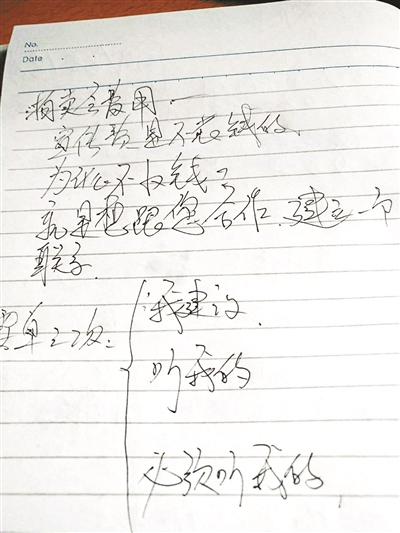 No.
Date
拍卖会费用
宣传费是不收钱的
为什么不收钱？
就是想跟您合作、建立一个
联系.
单三次：
我建议、
听我的
必须听我的、